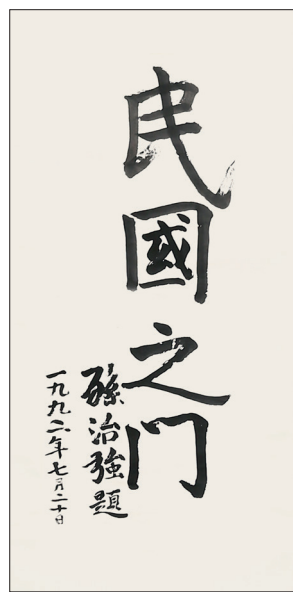 民國之门
孫治強題
一九九二年七月二十日